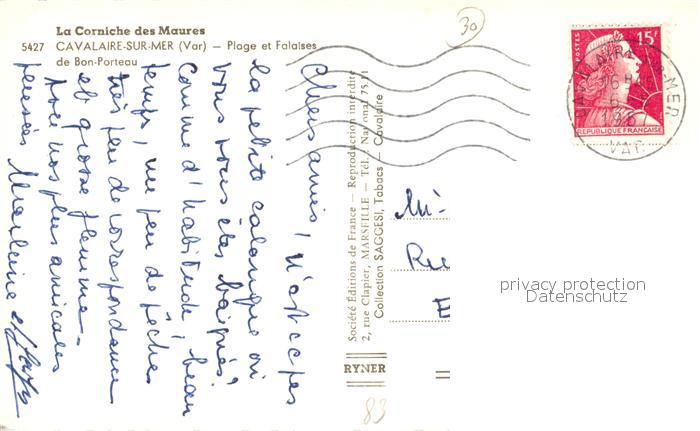 La Corniche des Maures
5427 CAVALAIRE-SUR-MER (Var) — Plage et Falaises
de Bon-Porteau
30
POSTES
15F
REPUBLIQUE FRANÇAISE
MER
VAR
Chers amis, n'est ce pas
la petite calanque où
vous vous êtes baignés?
Comme d'habitude, beau
temps, un peu de pêches
très peu de correspondance
et grosse flemme.
Avec nos plus amicales
pensées Marleine et
Société Éditions de France — Reproduction interdite
2, rue Clapier, MARSEILLE — Tél. National 75.71
Collection SAGGESI, Tabacs — Cavalaire
RYNER
Mr
83
privacy protection
Datenschutz